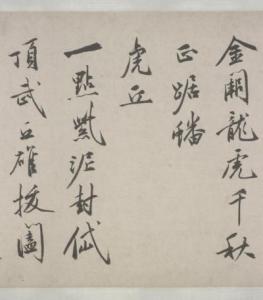 金闕龍虎千秋
正踞蟠
虎丘
一點紫泥封
頂武丘雄揆闔